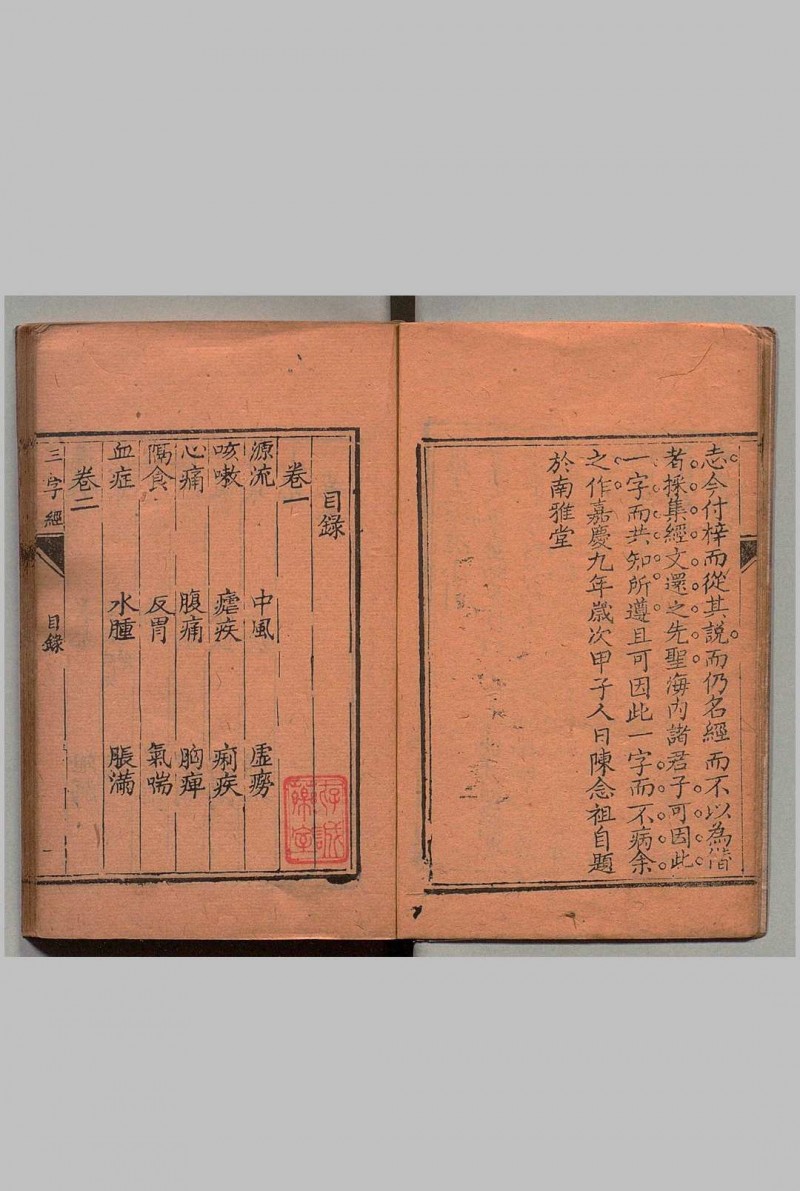 志今付梓而從其說而仍名經而不以為僭
者採集經文還之先聖海內諸君子可因此
一字而共知所遵且可因此一字而不病余
之作嘉慶九年歲次甲子人日陳念祖自題
於南雅堂
目錄
卷一
源流 中風 虛癆
咳嗽 瘧疾 痢疾
心痛 腹痛 胸痺
隔食 反胃 氣喘
血症 水腫 脹滿
卷二
三字經 目錄 一
存誠藥室